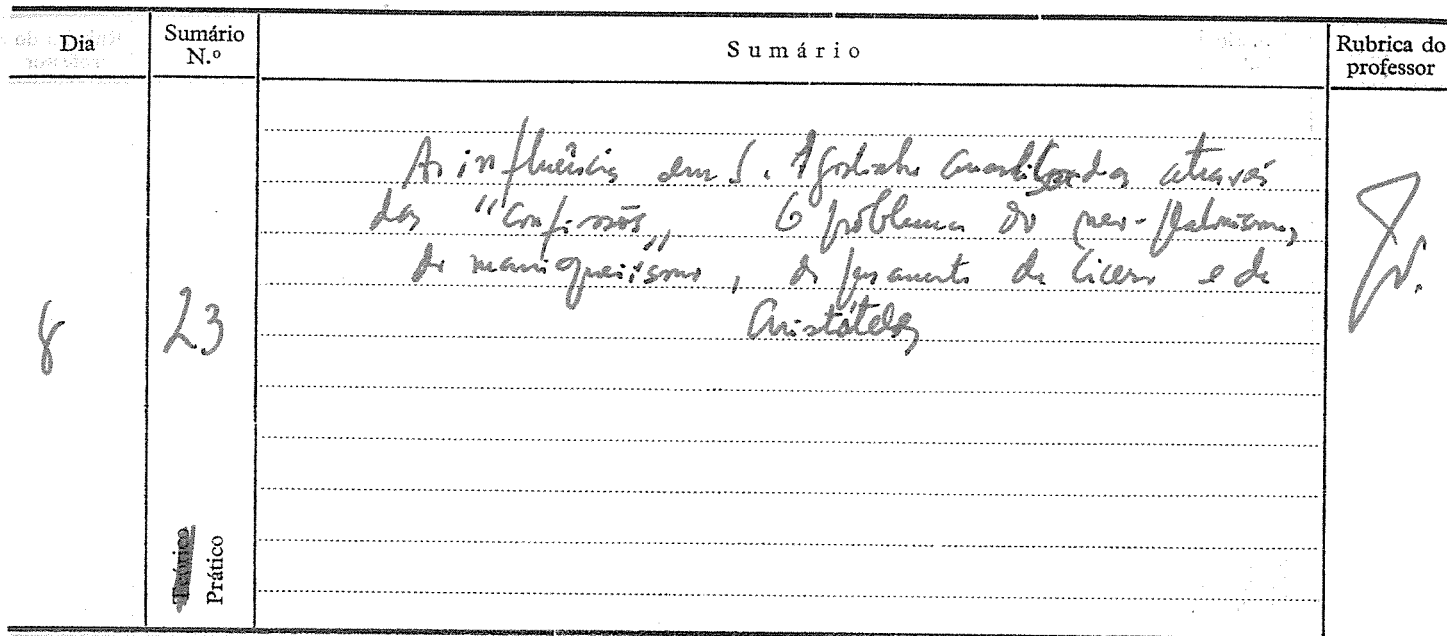 Dia
Sumário
N.º
Sumário
Rubrica do
professor
8
23
As influências em S. Agostinho através
das "Confissões" O problema do neo-platonismo,
do maniqueísmo, do pensamento de Cícero e de
Aristóteles
Teórico
Prático